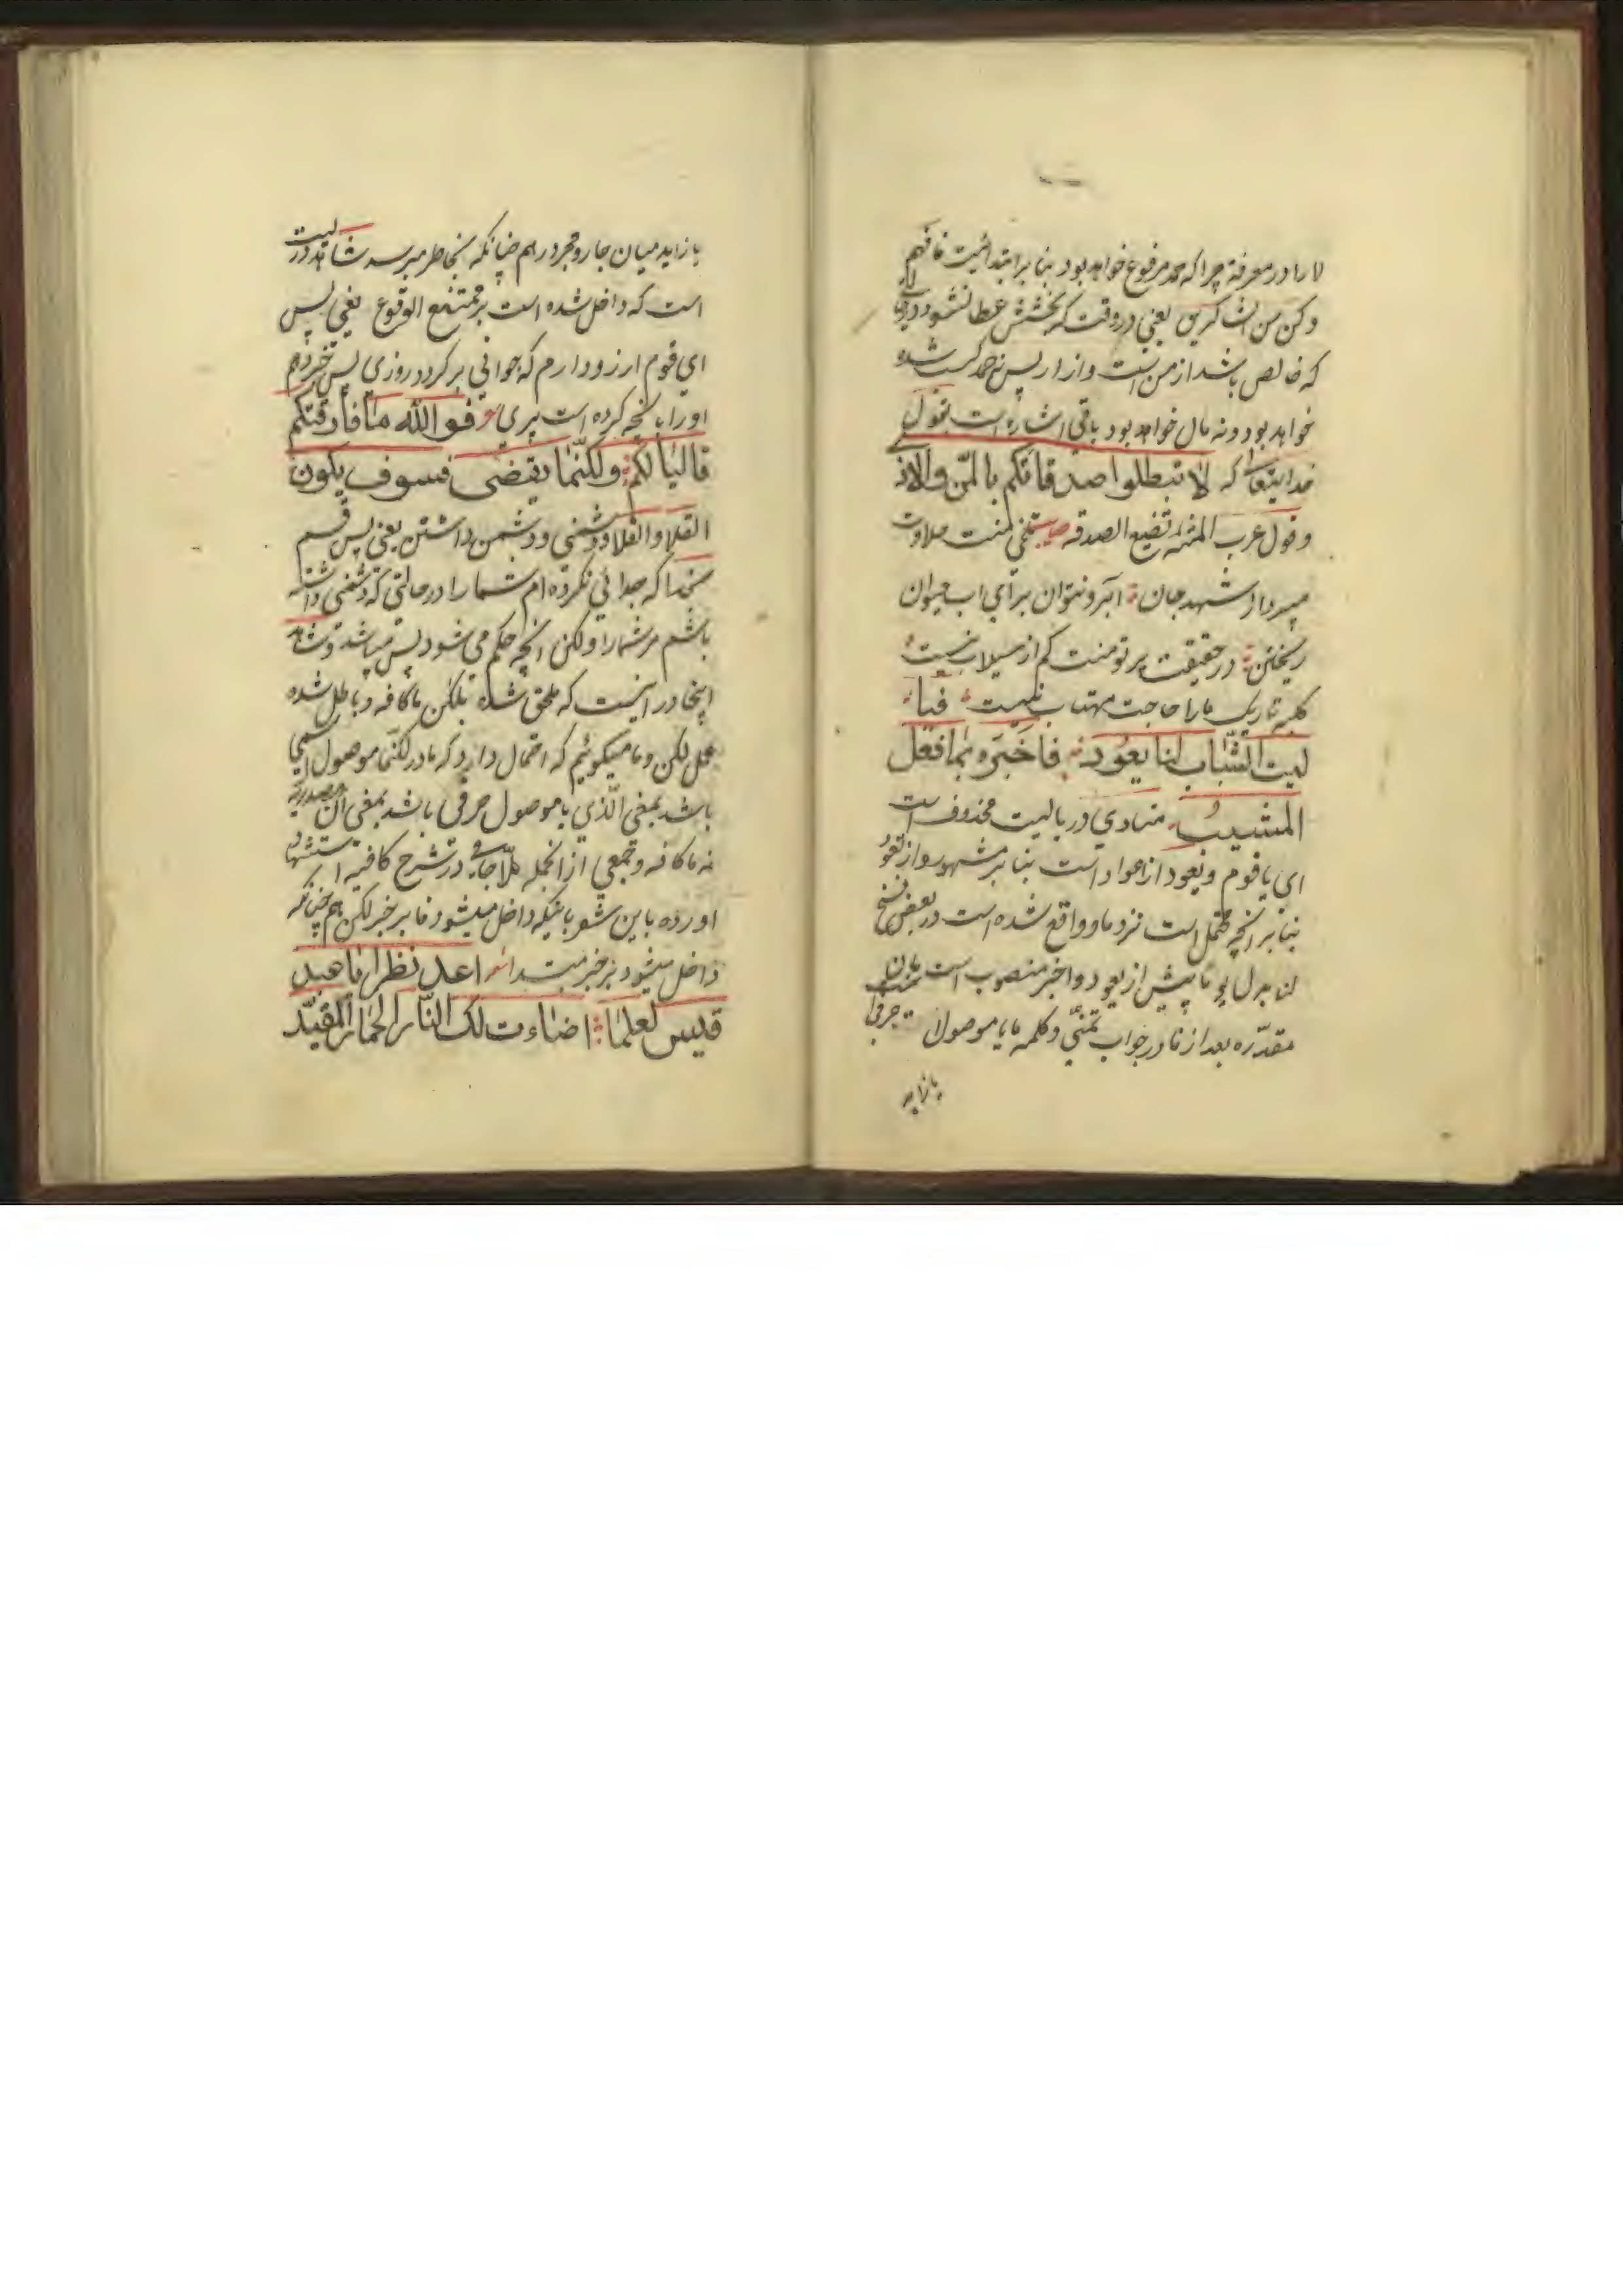 لا را در معرفة چرا که حمد مرفوع خواهد بود بنا بر ابتدائیت فافهم
وکن من الشاکرین یعنی در وقت که بخشش عطا نشود
که خالص باشد از من و اذا پس نه حمد کسب شده
خواهد بود و نه مال خواهد بود باقی اشاره است بقول
خدایتعالی که لا تبطلوا صدقاتکم بالمن والاذی
و قول عرب المنة تضیع الصدقه تلخی منت حلاوت
میبرد از شهد جان آبرو نتوان برای اب حیوان
ریختن در حقیقت پرتو منت کم از سیلاب نیست
کلبه تاریک ما را حاجت مهتاب نیست فیا
لیت الشباب لنا یعود فاخبره بما فعل
المشیب منادی در یا لیت محذوف است
ای یا قوم و یعود از عواد است بنا بر مشهور و از تعود
بنا بر انچه محتمل است نزد ما و واقع شده است در بعض نسخ
لنا بدل یوما پیش از یعود و اخبر منصوب است بان
مقدره بعد از فا در جواب تمنی و کلمه ما یا موصول حرفی
یا زاید
یا زاید میان جار و مجرور هم چنانکه بخاطر میرسد شاهد در لیت
است که داخل شده است بر ممتنع الوقوع یعنی پس
ای قوم ارزو دارم که جوانی بر گردد روزی پس خبر دهم
او را بانچه کرده است پیری فو الله ما فارقتکم
قالیا لکم ولکنما یقضی فسوف یکون
القلا و القلاء دشنی و دشمن داشتن یعنی پس قسم
بخدا که جدائی نکرده ام شما را در حالتی که دشمنی داشته
باشم مر شما را ولکن انچه حکم می شود پس میباشد و شاهد
اینجا در اینست که ملحق شده بلکن ما کافه و باطل شده
عمل لکن و ما میکوئیم که احتمال دارد که ما در لکنما موصول اسمی
باشد بمعنی الذی یا موصول حرفی باشد بمعنی ان مصدریه
نه ما کافه و جمعی از انجمله ملا جامی در شرح کافیه استشهاد
اورده باین شعر باینکه داخل میشود فا بر خبر لکن هم چنانکه
داخل میشود بر خبر مبتدا اعد نظرا یا عبد
قیس لعلما اضاءت لک النار الحمار المقید